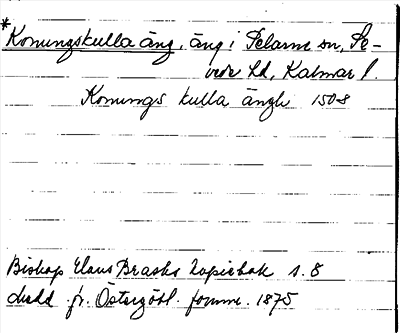 *Konungskulla äng, äng i Pelarne sn, Se-
vede hd, Kalmar l
Konungs kulla ängh 1508
Biskop Hans Brasks kopiebok s. 8
medd. fr. Östergötl. fornm. 1875